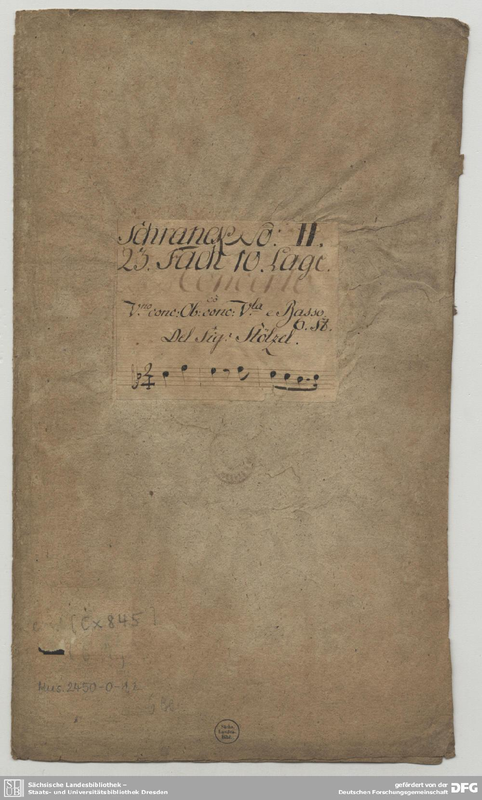 Schranck No: II.
23. Fach 10. Lage.
Concerto
co
V.no conc: Ob: conc: V.la e Basso
6. St.
Del Sig.r Stölzel.
[Cx 845]
Mus. 2450-O-1,2
Sächs.
Landes-
Bibl.
Sächsische Landesbibliothek –
Staats- und Universitätsbibliothek Dresden
gefördert von der
Deutschen Forschungsgemeinschaft DFG
SLUB